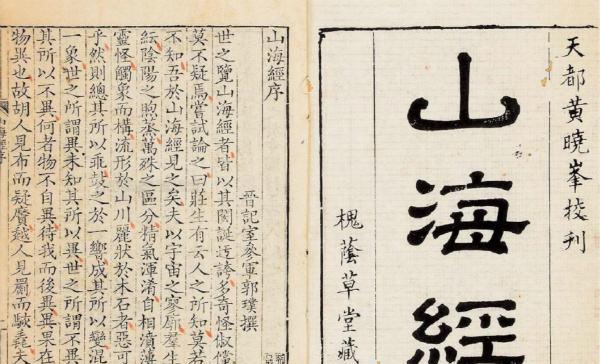 天都黃曉峯挍刊
山海經
槐蔭草堂藏
山海經序
晉記室參軍郭璞撰
世之覽山海經者皆以其閎誕迂誇多奇怪俶儻
莫不疑焉嘗試論之曰莊生有云人之所知莫若
不知吾於山海經見之矣夫以宇宙之寥廓羣生
紜陰陽之煦蒸萬殊之區分精氣渾淆自相濆薄
靈怪觸象而構流形於山川麗狀於木石者惡可
乎然則總其所以乖鼓之於一響成其所以變混
一象世之所謂異未知其所以異世之所謂
其所以不異何者物不自異待我而後異異果在
物異也故胡人見布而疑黂越人見罽而駭毳夫